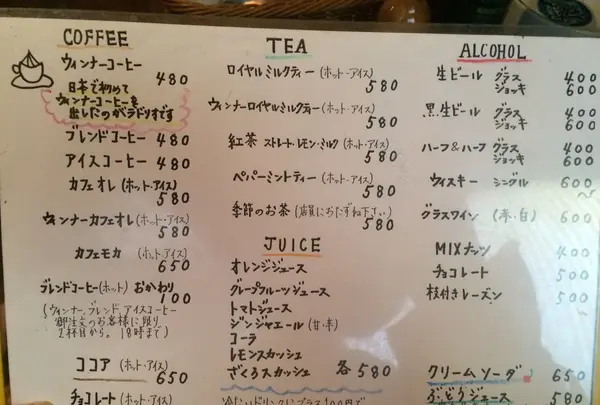 COFFEE
ウィンナーコーヒー 480
日本で初めて
ウィンナーコーヒーを
出したのがラドリオです
ブレンドコーヒー 480
アイスコーヒー 480
カフェオレ (ホット・アイス)
580
ウィンナーカフェオレ (ホット・アイス)
580
カフェモカ (ホット・アイス)
650
ブレンドコーヒー(ホット) おかわり
100
(ウィンナー、ブレンド、アイスコーヒー
御注文のお客様に限り
2杯目から。18時まで)
ココア (ホット・アイス)
650
チョコレート (ホット・アイス)
TEA
ロイヤルミルクティー (ホット・アイス)
580
ウィンナーロイヤルミルクティー (ホット・アイス)
580
紅茶 ストレート・レモン・ミルク (ホット・アイス)
580
ペパーミントティー (ホット・アイス)
580
季節のお茶 (店員におたずね下さい)
580
JUICE
オレンジジュース
グレープフルーツジュース
トマトジュース
ジンジャエール (甘・辛)
コーラ
レモンスカッシュ
ざくろスカッシュ 各580
冷たいドリンクにプラス100円で
ALCOHOL
生ビール グラス 400
ジョッキ 600
黒生ビール グラス 400
ジョッキ 600
ハーフ&ハーフ グラス 400
ジョッキ 600
ウィスキー シングル 600
〜
グラスワイン (赤・白) 600
MIXナッツ 400
チョコレート 500
枝付きレーズン 500
クリームソーダ 650
ぶどうジュース 580